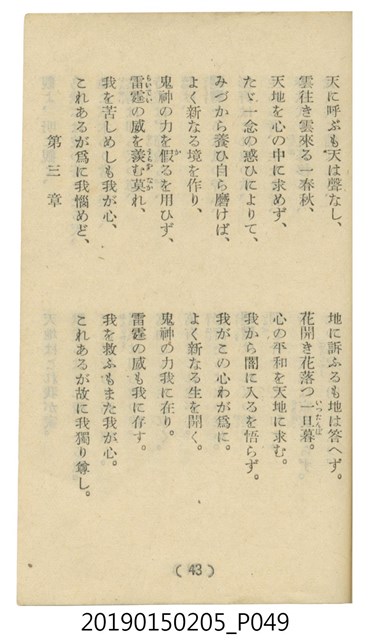 天に呼ぶも天は聲なし、 地に訴ふるも地は答へず。
雲往き雲來る一春秋、 花開き花落つ一旦暮。
天地を心の中に求めず、 心の平和を天地に求む。
たゞ一念の惑ひによりて、 我から闇に入るを悟らず。
みづから養ひ自ら磨けば、 我がこの心わが爲に。
よく新なる境を作り、 よく新なる生を開く。
鬼神の力を假るを用ひず、 鬼神の力我に在り。
雷霆の威を羨む莫れ、 雷霆の威も我に存す。
我を苦しめしも我が心、 我を救ふもまた我が心。
これあるが爲に我惱めど、 これあるが故に我獨り尊し。
第三章
(43)
20190150205_P049